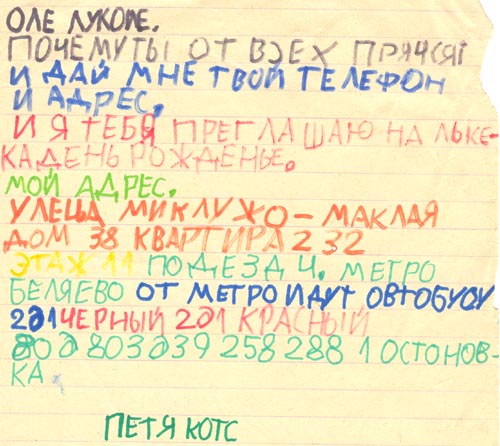 ОЛЕ ЛУКОЕ.
ПОЧЕМУ ТЫ ОТ ВЗЕХ ПРЯЧСЯ?
И ДАЙ МНЕ ТВОЙ ТЕЛЕФОН
И АДРЕС,
И Я ТЕБЯ ПРЕГЛАШАЮ НА ЛЬКЕ-
КА ДЕНЬ РОЖДЕНЬЕ.
МОЙ АДРЕС.
УЛЕЦА МИКЛУЖО-МАКЛАЯ
ДОМ 38 КВАРТИРА 232
ЭТАЖ 11 ПОДЕЗД 4. МЕТРО
БЕЛЯЕВО ОТ МЕТРО ИДУТ ОВТОБУСУ
201 ЧЕРНЫЙ 201 КРАСНЫЙ
803 239 258 288 1 ОСТОНОВ-
КА
ПЕТЯ КОТС